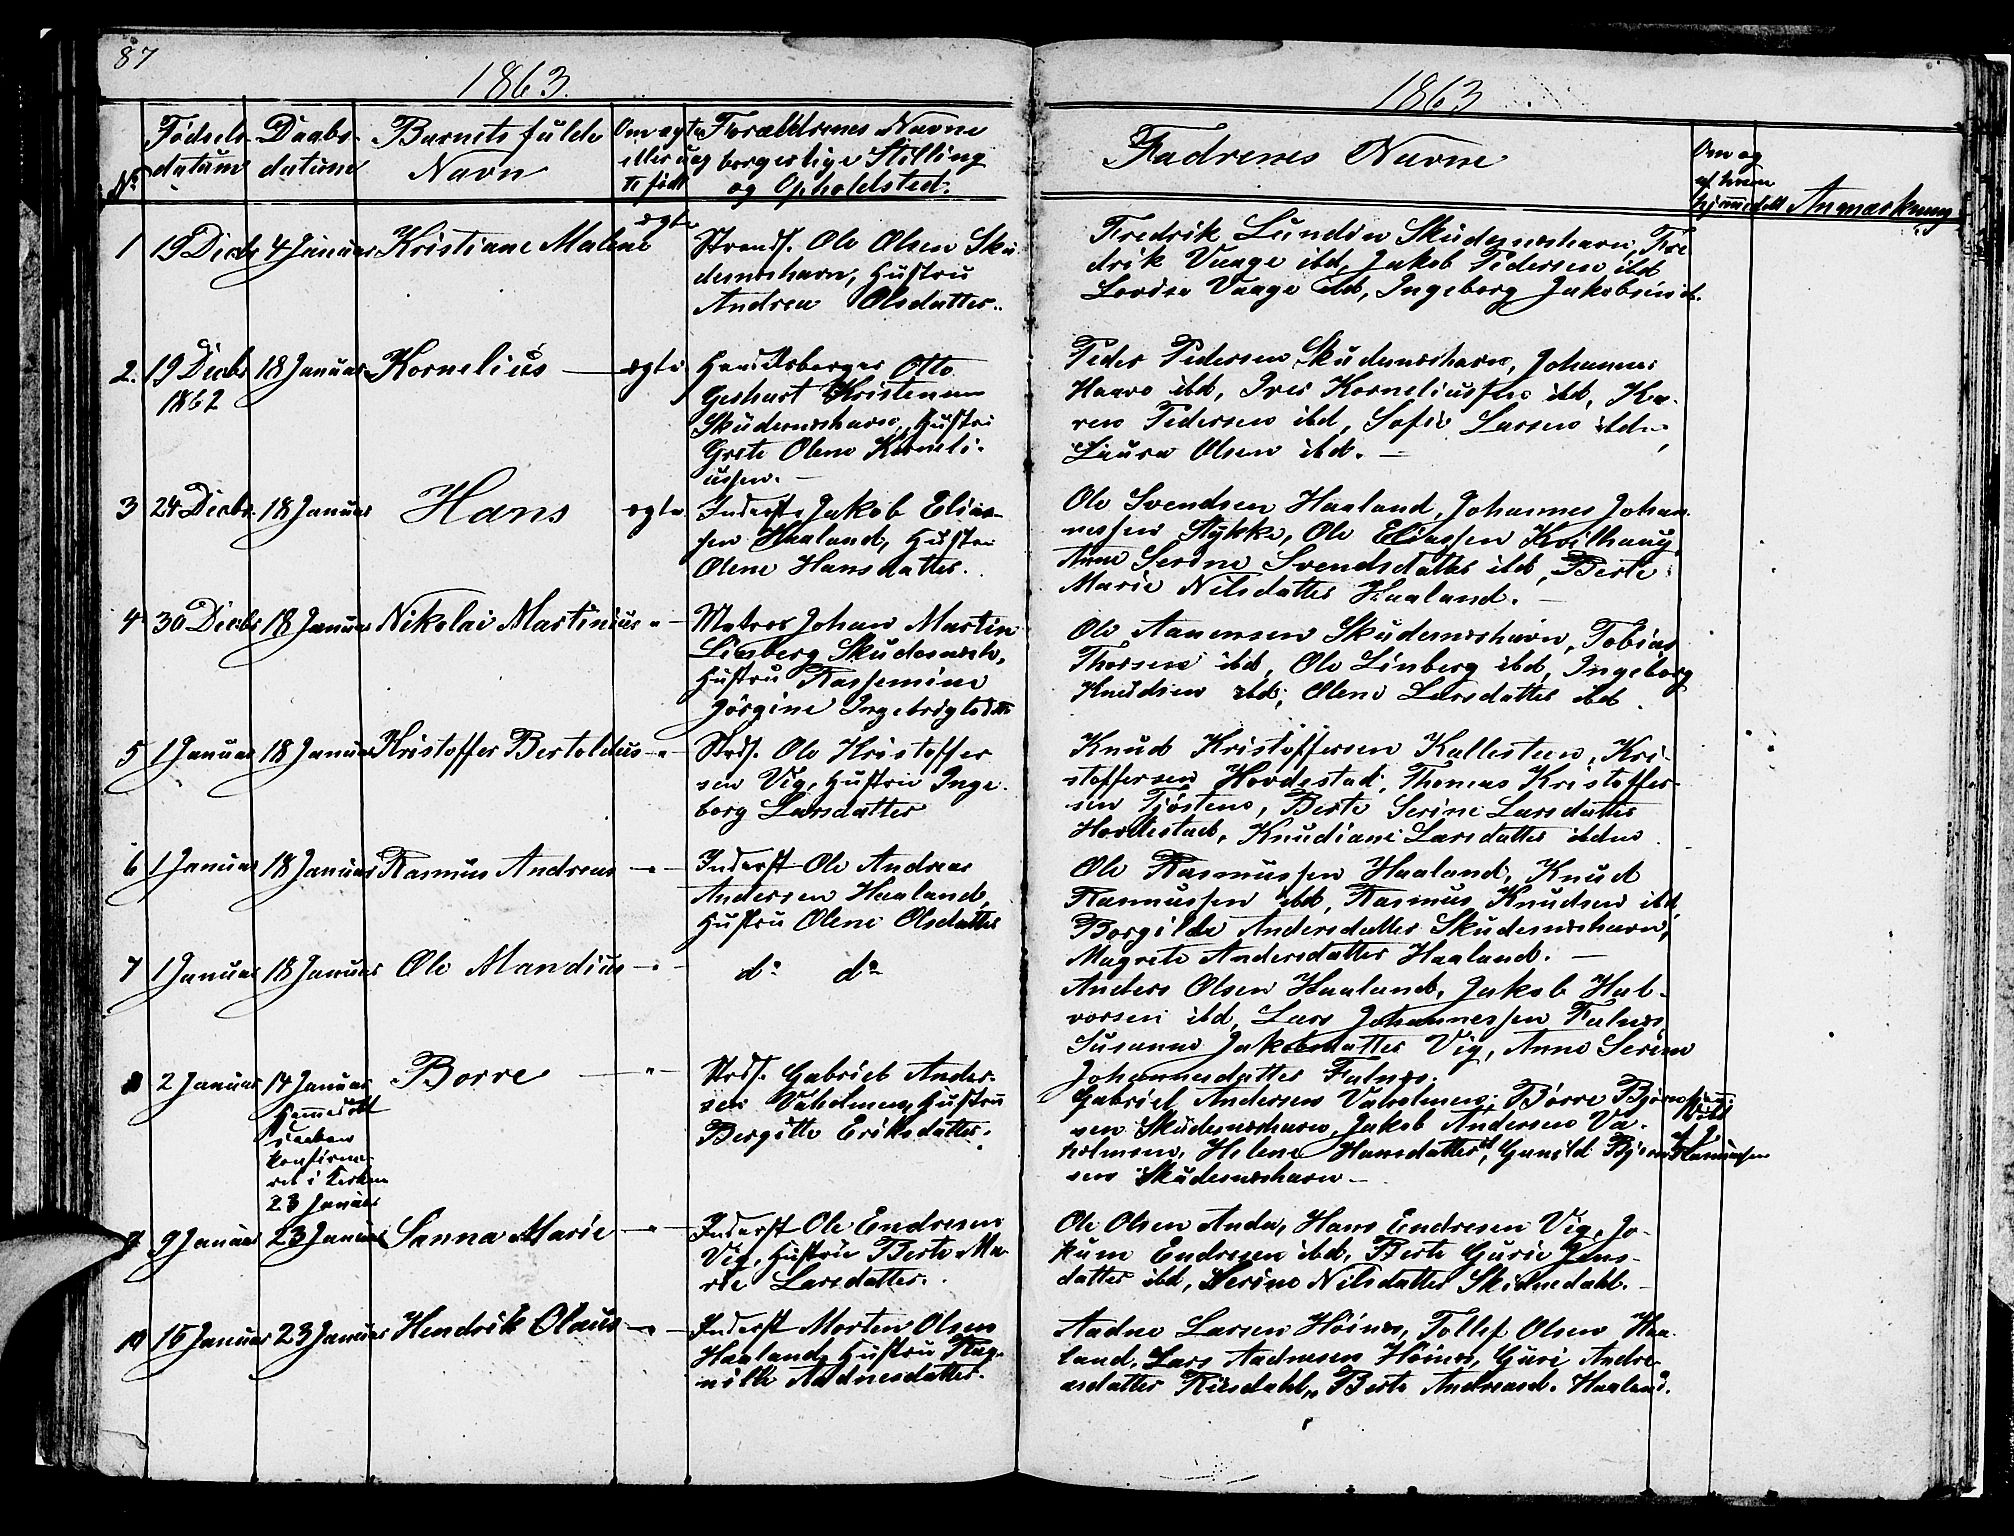 87
1863.
1863
No
Fødsels
datum
Daabs-
datum
Barnets fulde
Navn
Om ægte
eller uæg
te født
Forældrenes Navne
borgerlige Stilling
og Opholdsted.
Faddrenes Navne
Om og
af hvem
hjemmedøbt
Anmærkning
1 19 Decbr 4 Januar Kristiane Malene ægte Strands. Ole Olsen Sku
desneshavn, Hustru
Andrea Olsdatter.
Fredrik Lundin Skudesneshavn, Fre
drik Vaage ibd, Jakob Pedersen ibd
Lovise Vaage ibd, Ingeborg Jakobsen ibd.
2. 19 Decbr 18 Januar Kornelius — ægte Handelsborger Otto
1862
Gerhart Kristensen
Skudesneshavn, Hustru
Grete Olene Korneli-
ussen. —
Peder Pedersen Skudesneshavn, Johannes
Haave ibd, Iver Korneliussen ibd, Ka-
ren Pedersen ibd, Sofie Larsen ibd
Laura Olsen ibd. —
3 24 Decbr 18 Januar Hans ægte Inderst Jakob Elias-
sen Haaland, Hustru
Olene Hansdatter.
Ole Svendsen Haaland, Johannes Johan-
nessen Stykke, Ole Eliassen Kvilhaug
Anne Serine Svendsdatter ibd, Berte
Marie Nilsdatter Haaland. —
4 30 Decbr 18 Januar Nikolai Martinius " — Matros Johan Martin
Linberg Skudesnesh,
Hustru Rassemine
Jørgine Ingebrigtsdtr
Ole Aanensen Skudesneshavn, Tobias
Thorsen ibd, Ole Linberg ibd, Ingeborg
Knudsen ibd, Olene Larsdatter ibd.
5 1 Januar 18 Januar Kristoffer Bertoldus - " Strds. Ole Kristoffer
sen Vig, Hustru Inge-
borg Larsdatter
Knud Kristoffersen Kallesteen, Kri-
stoffersen Hovdestad, Thomas Kristoffer-
sen Tjøsten, Berte Serine Larsdatter
Hovdestad, Knudiane Larsdatter ibd
6 1 Januar 18 Januar Rasmus Andreas - " - Inderst Ole Andreas
Andersen Haaland,
Hustru Olene Olsdatter
Ole Rasmussen Haaland, Knud
Rasmussen ibd, Rasmus Knudsen ibd
Borgilde Andersdatter Skudesneshavn,
Magrete Andersdatter Haaland. —
7 1 Januar 18 Januar Ole Mandius - " - do do
Anders Olsen Haaland, Jakob Hal-
vorsen ibd, Lars Johannessen Falnes,
Susanne Jakobsdatter Vig, Anne Serine
Johannesdatter Falnes.
8 2 Januar 14 Januar Borre — " — Strds. Gabriel Ander-
sen Vaholmen, Hustru
Bergitte Eriksdatter.
Hjemedøbt
Daaben
konfirme-
ret i Kirken
23 Januar
Gabriel Andersen Vaholmen, Børre Bjørn
sen Skudesneshavn, Jakob Andersen Va-
holmen, Helene Hansdatter, Gunild Bjørn
sen Skudesneshavn —
9 9 Januar 23 Januar Sanna Marie - " - Inderst Ole Endresen
Vig, Hustru Berte Ma-
rie Larsdatter.
Ole Olsen Anda, Hans Endresen Vig, Jo-
kum Endresen ibd, Berte Gurie Jens-
datter ibd, Serine Nilsdatter Skidnedahl. —
10 15 Januar 23 Januar Hendrik Olaus - " - Inderst Morten Olsen
Haaland, Hustru Rag-
nilde Aadnesdatter.
Aadne Larsen Høines, Tollef Olsen Haa-
land, Lars Aadnesen Høines, Guri Andre-
asdatter Risdahl, Berte Andreasd. Haaland.